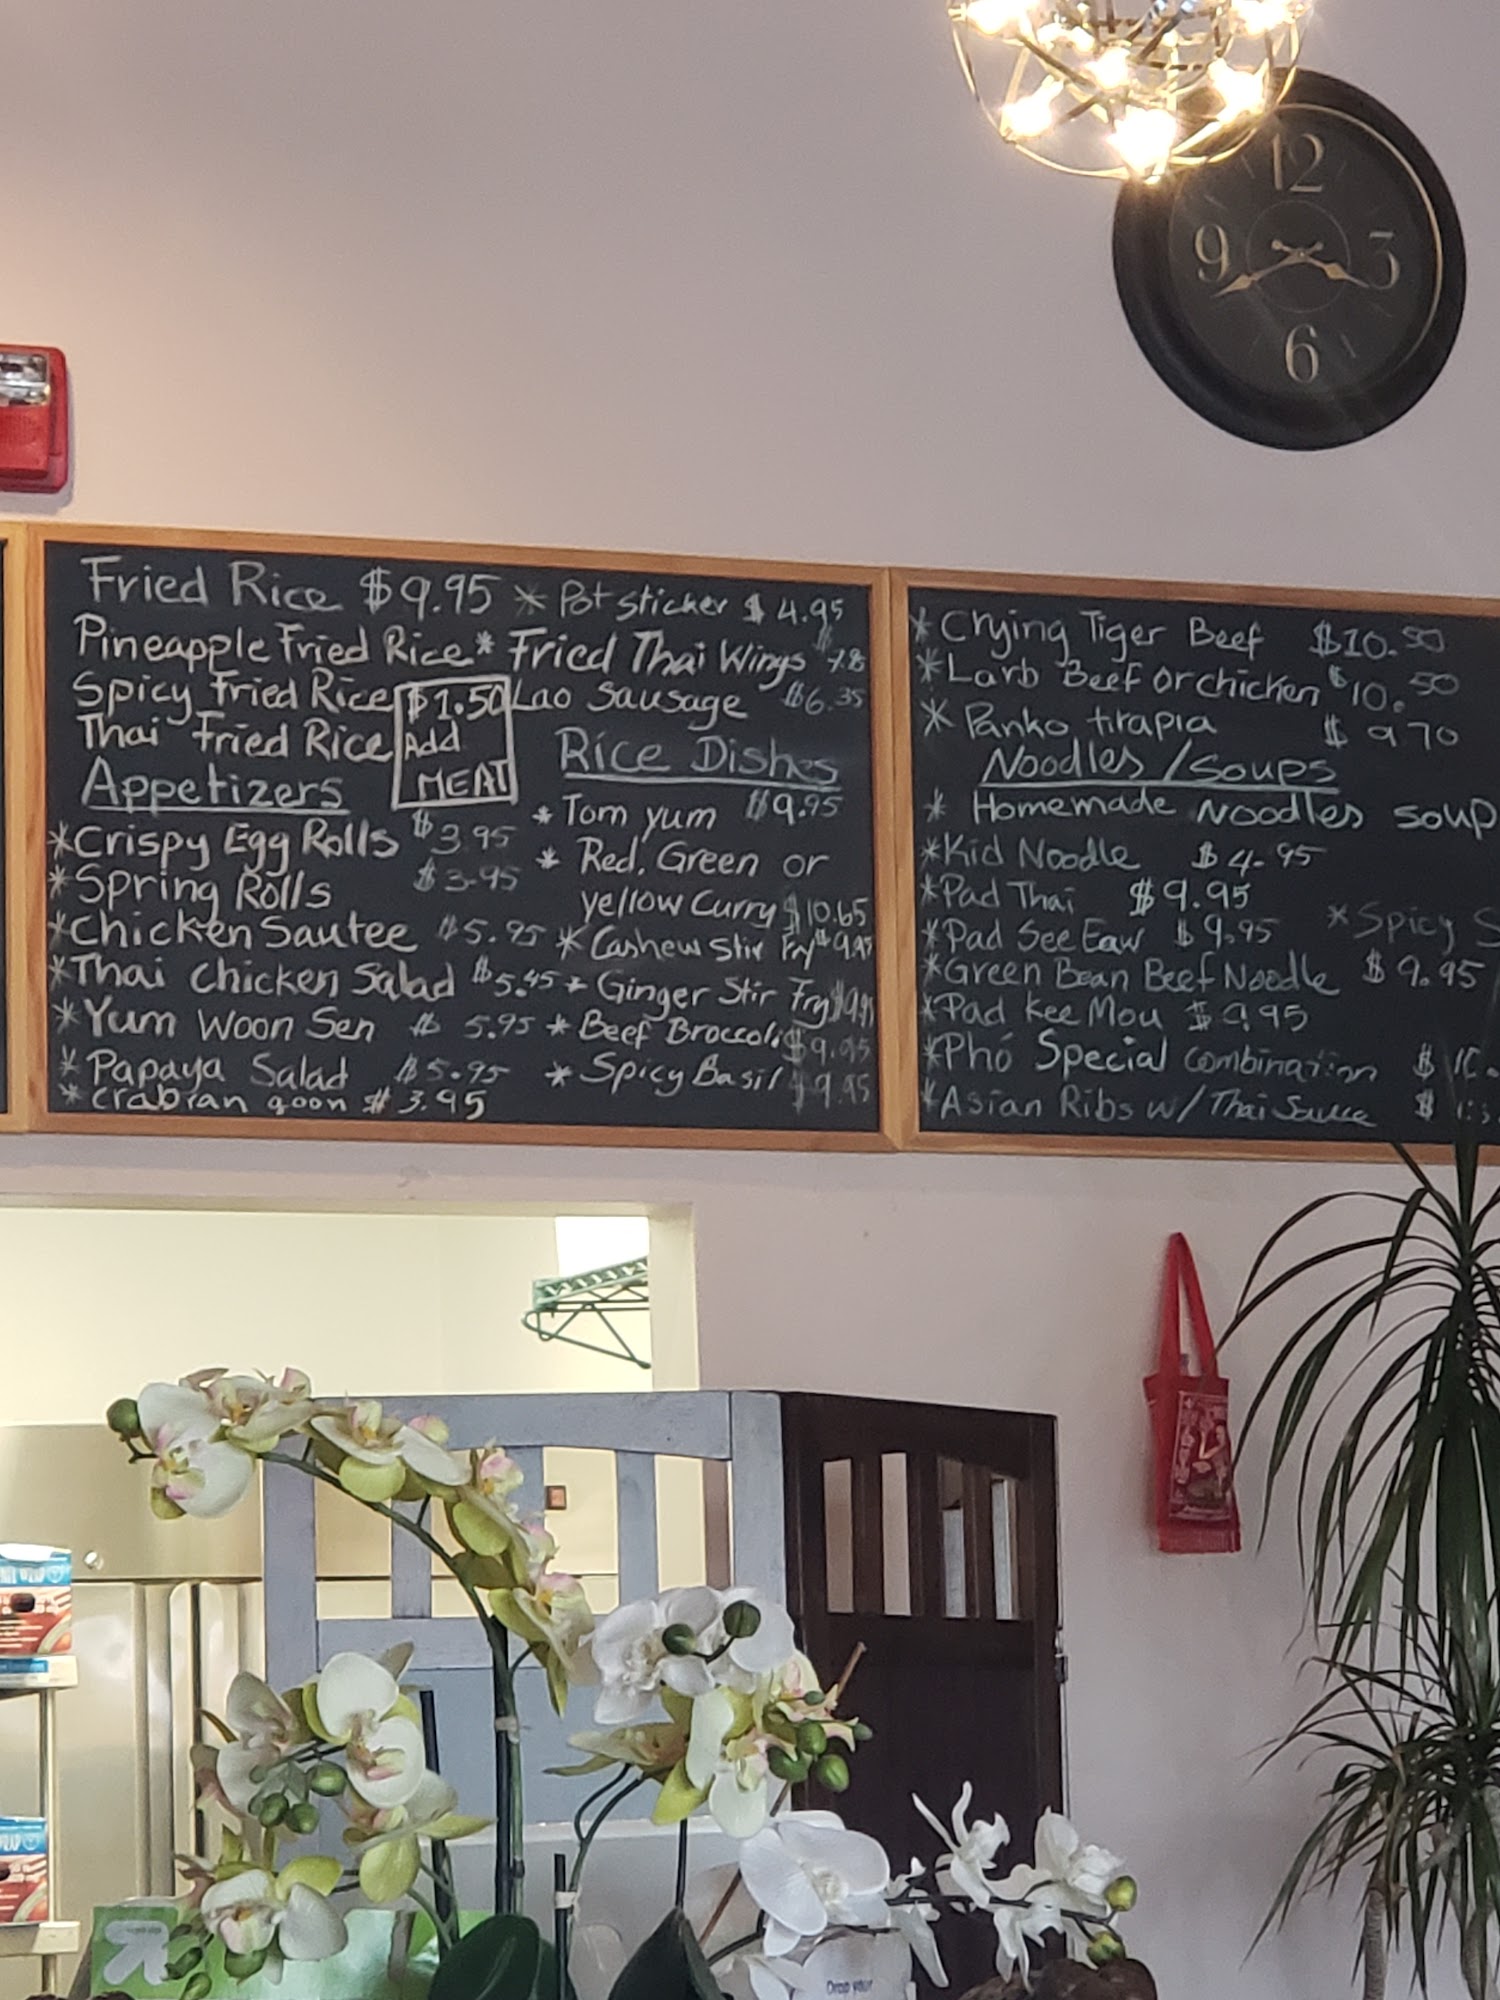 12
9
3
6
Fried Rice $9.95
Pineapple Fried Rice
Spicy Fried Rice
Thai Fried Rice
$1.50
Add
MEAT
Appetizers
*Crispy Egg Rolls $3.95
*Spring Rolls $3.95
*Chicken Sautee $5.95
*Thai Chicken Salad $5.45
*Yum Woon Sen $5.95
*Papaya Salad $5.95
*crabran goon $3.95
*Pot sticker $4.95
*Fried Thai Wings
Lao Sausage $6.35
Rice Dishes
*Tom yum $9.95
*Red, Green or
yellow Curry $10.65
*Cashew Stir Fry $9.95
*Ginger Stir Fry $9.95
*Beef Broccoli $9.95
*Spicy Basil $9.95
*Crying Tiger Beef $10.50
*Larb Beef or chicken $10.50
*Panko tirapia $9.70
Noodles/Soups
*Homemade Noodles soup
*Kid Noodle $4.95
*Pad Thai $9.95
*Pad See Eaw $9.95 *Spicy S
*Green Bean Beef Noodle $9.95
*Pad Kee Mou $9.95
*Phó Special Combination
*Asian Ribs w/Thai Sauce
Drop your